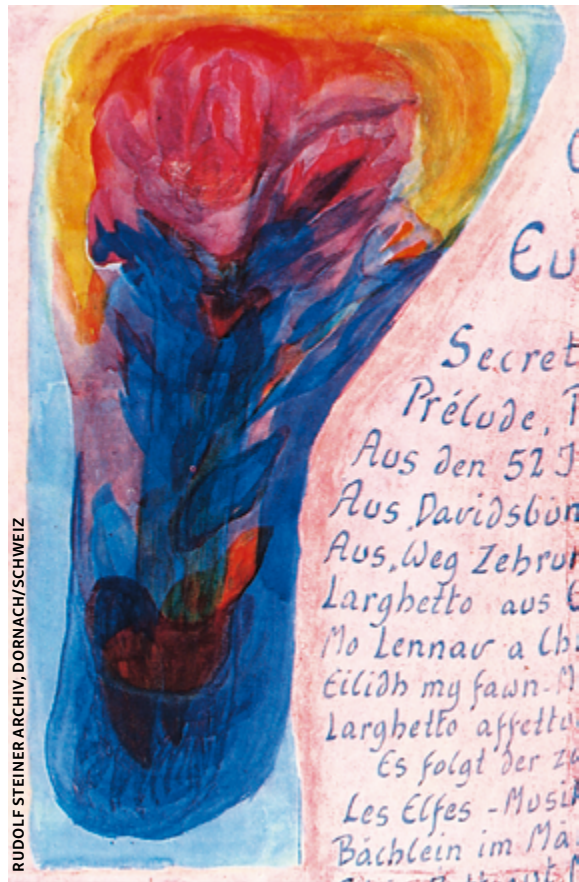 RUDOLF STEINER ARCHIV, DORNACH/SCHWEIZ
Eu
Secret
Prélude,
Aus den 52
Aus Davidsbün
Aus „Weg Zehrun
Larghetto aus
Mo Lennav a Ch
Eilidh my fawn-M
Larghetto affettu
Es folgt der zu
Les Elfes - Musik
Bächlein im Ma